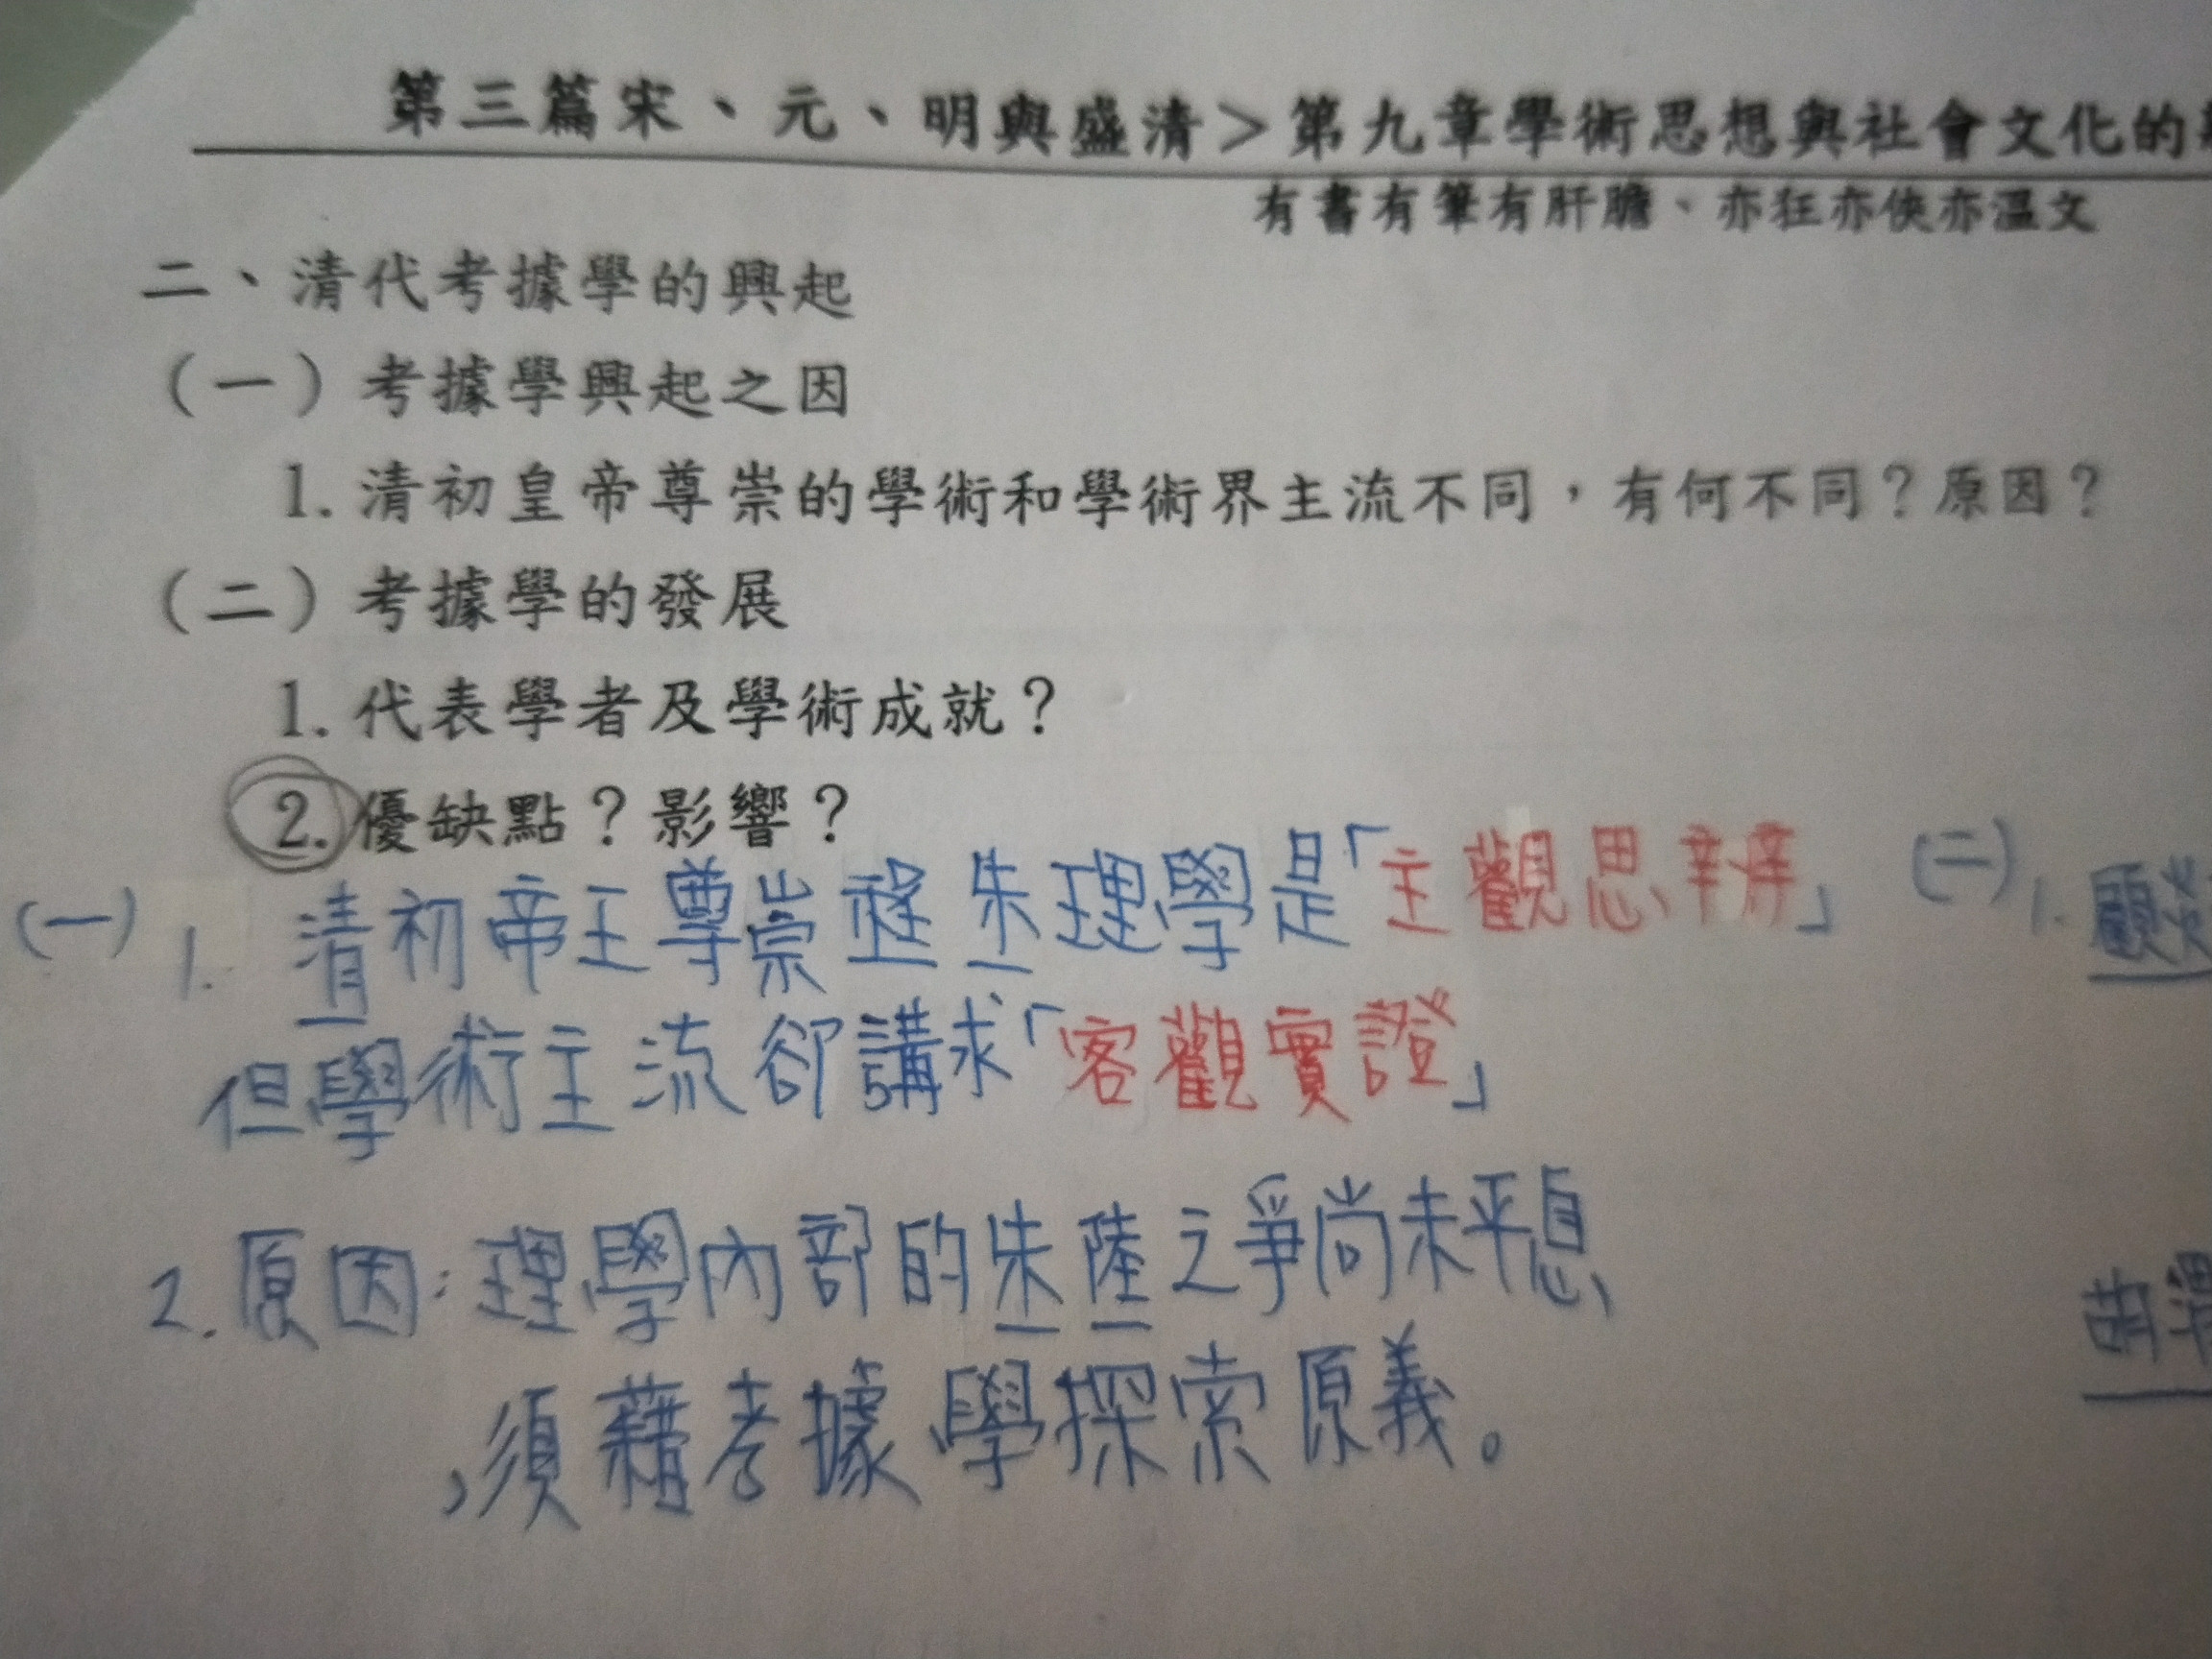 第三篇宋、元、明與盛清>第九章學術思想與社會文化的
有書有筆有肝膽、亦狂亦俠亦溫文
二、清代考據學的興起
(一)考據學興起之因
1.清初皇帝尊崇的學術和學術界主流不同,有何不同?原因?
(二)考據學的發展
1.代表學者及學術成就?
2.優缺點?影響?
(一) 1. 清初帝王尊崇程朱理學是「主觀思辨」
但學術主流卻講求「客觀實證」
2.原因:理學內部的朱陸之爭尚未平息
,須藉考據學探索原義。
(二) 1. 顧炎